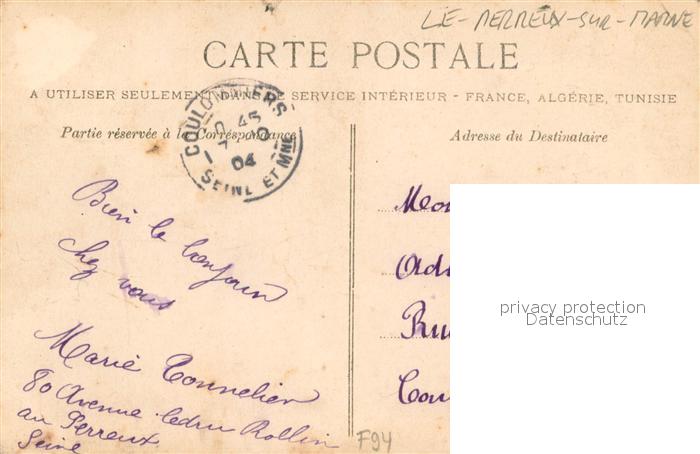 LE-PERREUX-SUR-MARNE
CARTE POSTALE
A UTILISER SEULEMENT DANS LE SERVICE INTÉRIEUR - FRANCE, ALGÉRIE, TUNISIE
Partie réservée à la Correspondance
Adresse du Destinataire
COULOMMIERS
45
04
SEINE ET MNE
Bien le bonjour
chez vous
Marie Tonnelier
80 Avenue Ledru Rollin
au Perreux
Seine
F94
privacy protection
Datenschutz